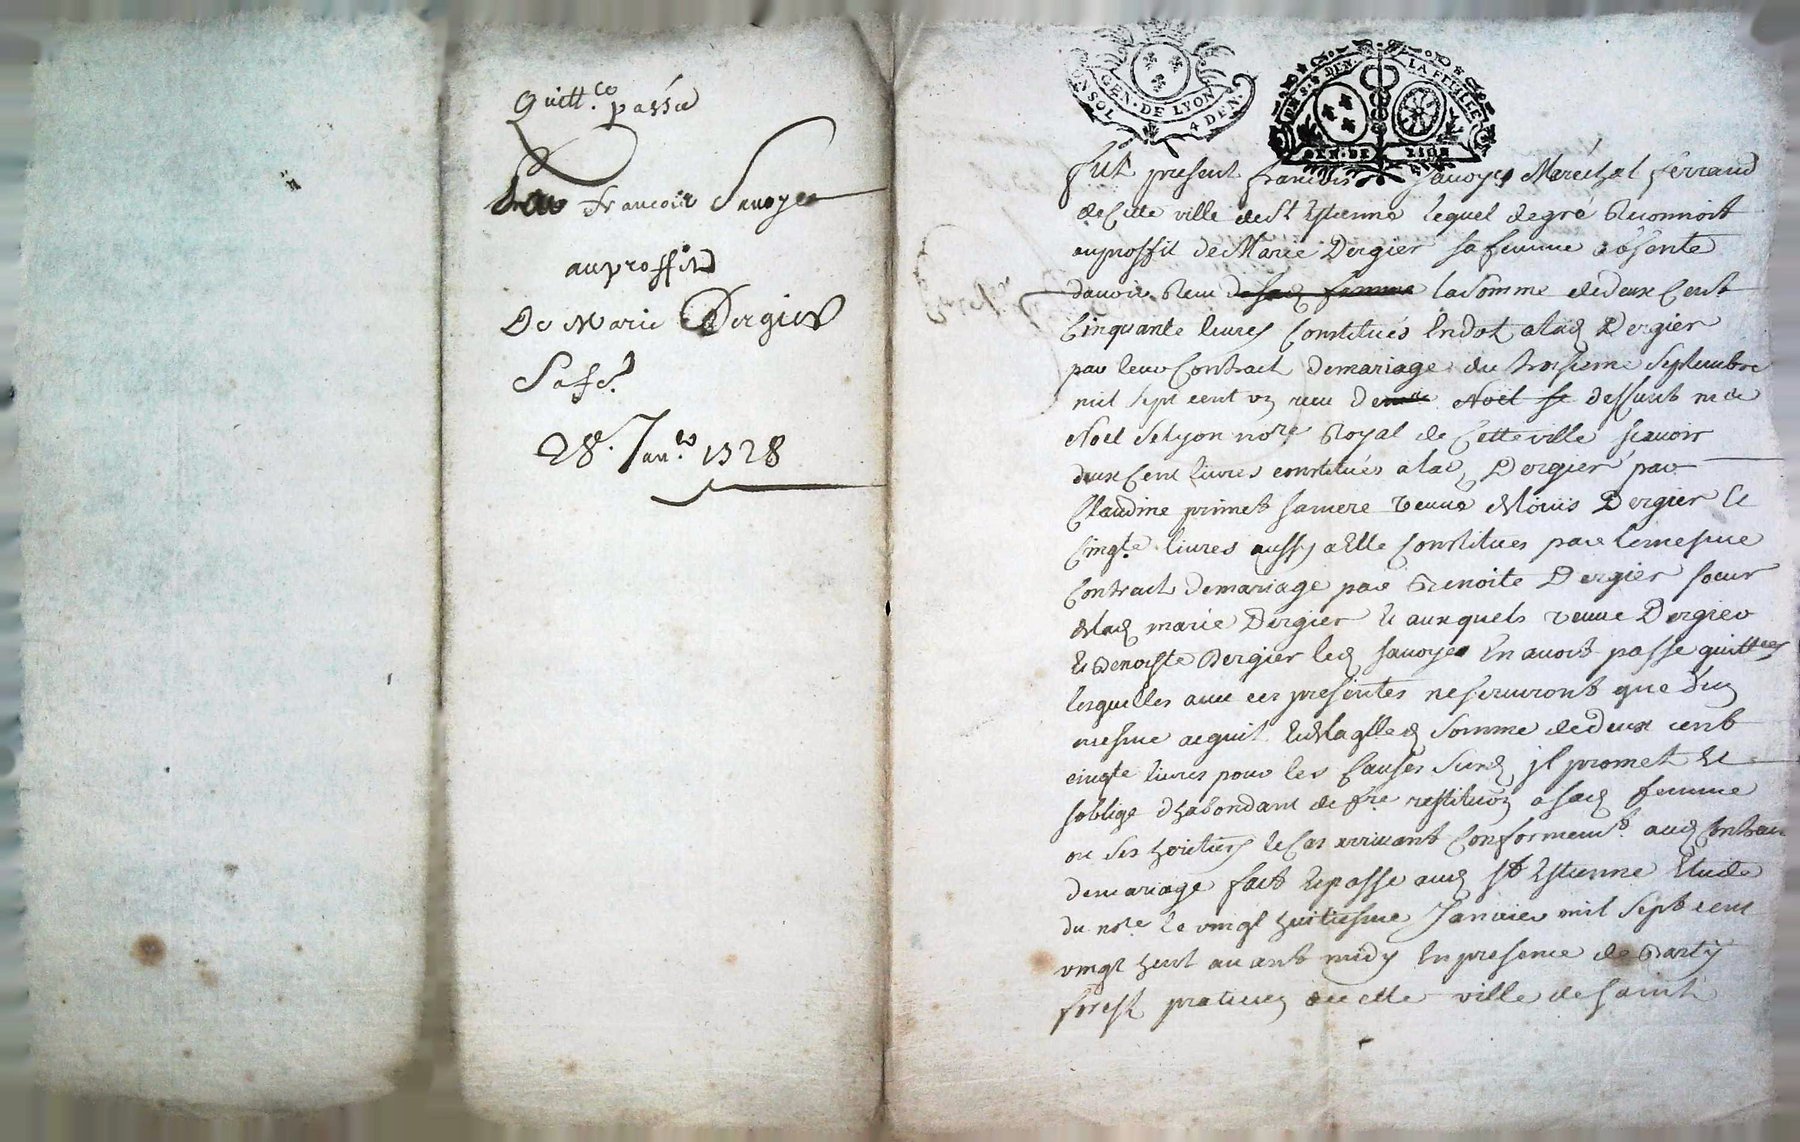 Quitt.ce passée
par francois Sauoyes
auproffit
De Marie Dergier
Sa fe.
28e. Janer. 1728
GEN · DE LYON
UN SOL 4 DEN ·
DEN · LA FEUILLE
GEN · DE LION
fut present françois Sauoyes Maréchal ferrand
de Cette ville de St Estienne lequel de gré Reconnoit
auproffit de Marie Dergier sa femme absente
dauoir Receu de sad femme la somme de deux Cent
Cinquante liures Constitués En dot a lad Dergier
par leur Contract de mariage du troisieme Septembre
mil sept cent receu de Noël se dessunt me
Noël Delyon nore Royal de Cette ville scauoir
deux Cent liures constitués a lad Dergier par
Claudine primet sa mere veuue de Louis Dergier Et
Cinqte liures aussy a Elle Constitues par le mesme
Contract de mariage par Benoite Dergier soeur
de lad marie Dergier Et auxquels veuue Dergier
Et Benoiste Dergier led Sauoyes En auoit passé quittces
lesquelles auec ces presentes ne seruiront que d'un
mesme acquit Et de laqlle d somme de deux cent
cinqte liures pour les Causes Susd il promet Et
soblige d'habondant de fre restituon a sad femme
ou ses heritiers le Cas arriuant Conformemt aud Contract
de mariage fait Et passé aud St Estienne Etude
du nore le vingt huitiesme Januier mil sept cent
vingt huit auant midy En presence de
forest praticien de cette ville de saint